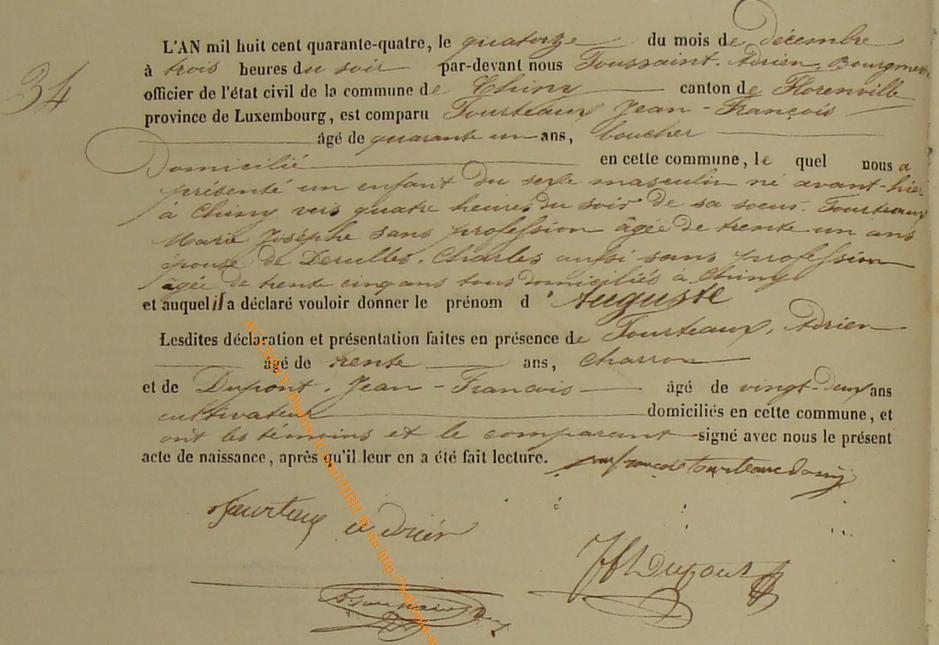 34
L'AN mil huit cent quarante-quatre, le quatorze du mois de décembre
à trois heures du soir par-devant nous Toussaint, Adrien, Bourgmestre
officier de l'état civil de la commune de Chiny canton de Florenville
province de Luxembourg, est comparu Tourteaux Jean-François
âgé de quarante un ans, boucher
Domicilié en cette commune, le quel nous a
présenté un enfant du sexe masculin né avant-hier
à Chiny vers quatre heures du soir de sa soeur. Tourteaux
Marie Joséphe sans profession âgée de trente un ans
épouse de Charles aussi sans profession
âgée de trente cinq ans tous domiciliés à Chiny
et auquel il a déclaré vouloir donner le prénom d'Auguste
Lesdites déclaration et présentation faites en présence de Tourteaux, Adrien
âgé de trente ans, charron
et de Dupont, Jean-François âgé de vingt-deux ans
cultivateur domiciliés en cette commune, et
ont les témoins et le comparant signé avec nous le présent
acte de naissance, après qu'il leur en a été fait lecture.
tourteaux
tourteaux adrien
Dupont